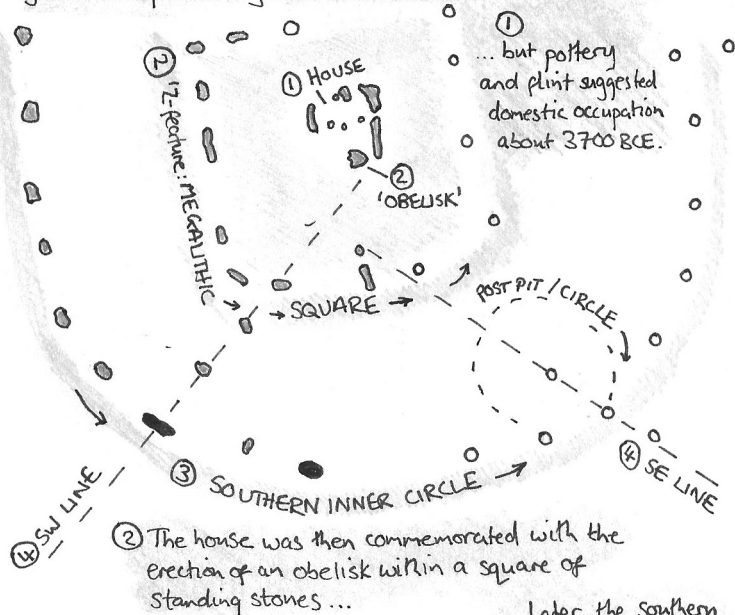 ①
... but pottery
and flint suggested
domestic occupation
about 3700 BCE.
① HOUSE
② 'Z-feature: MEGALITHIC
② 'OBELISK'
→ SQUARE →
POST PIT / CIRCLE
③ SOUTHERN INNER CIRCLE →
④ SW LINE
④ SE LINE
② The house was then commemorated with the
erection of an obelisk within a square of
standing stones ...
Later the Southern